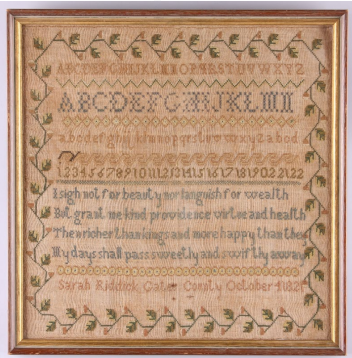 ABCDEFGHIJKLMNOPQRSTUVWXYZ
ABCDEFGHIJKLMN
abcdefghijklmnopqrstuvwxyzabcd
12345678910111213141516171819202122
I sigh not for beauty nor languish for wealth
But grant me kind providence virtue and health
Then richer than kings and more happy than they
My days shall pass sweetly and swiftly away
Sarah Riddick Gates County October